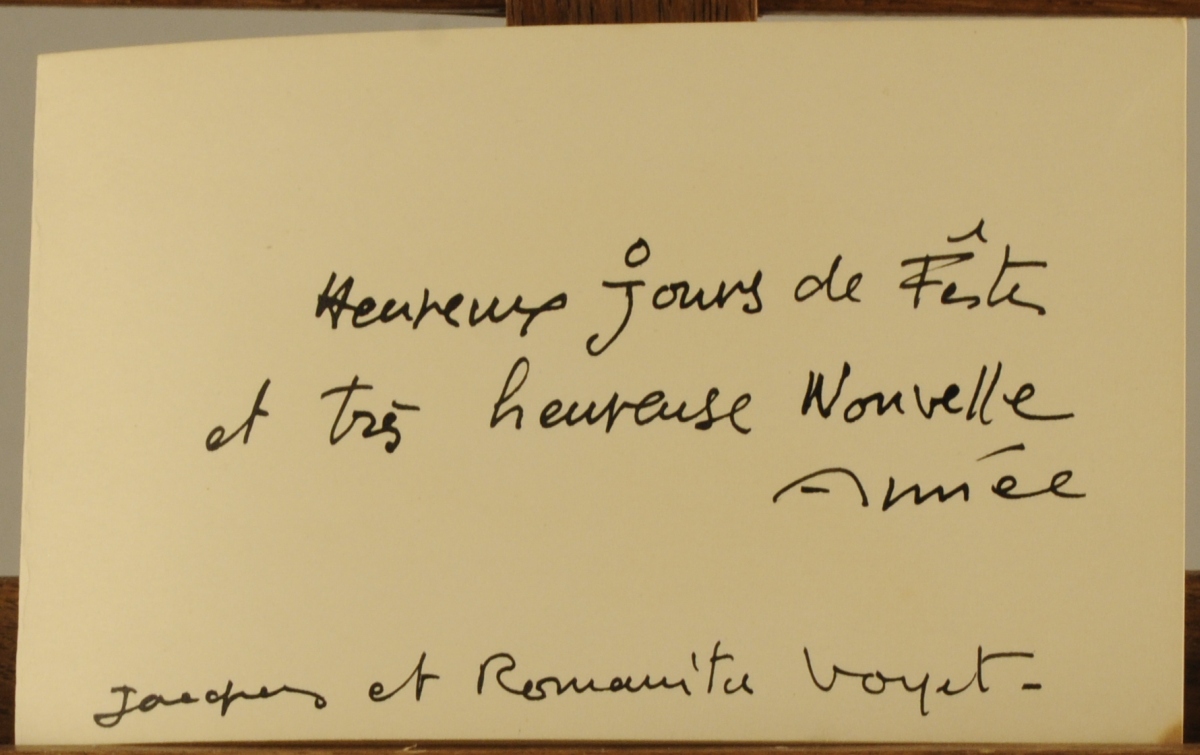 Heureux jours de Fêtes
et très heureuse Nouvelle
Année
Jacques et Romanita Voyet-